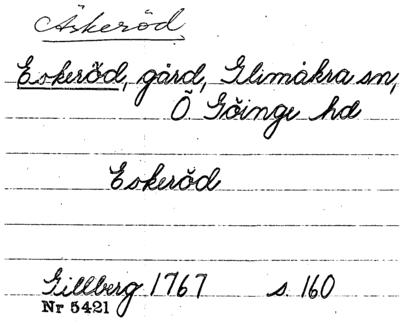 Äskeröd
Eskeröd, gård, Glimåkra sn,
Ö Göinge hd
Eskeröd
Gillberg 1767 s. 160
Nr 5421